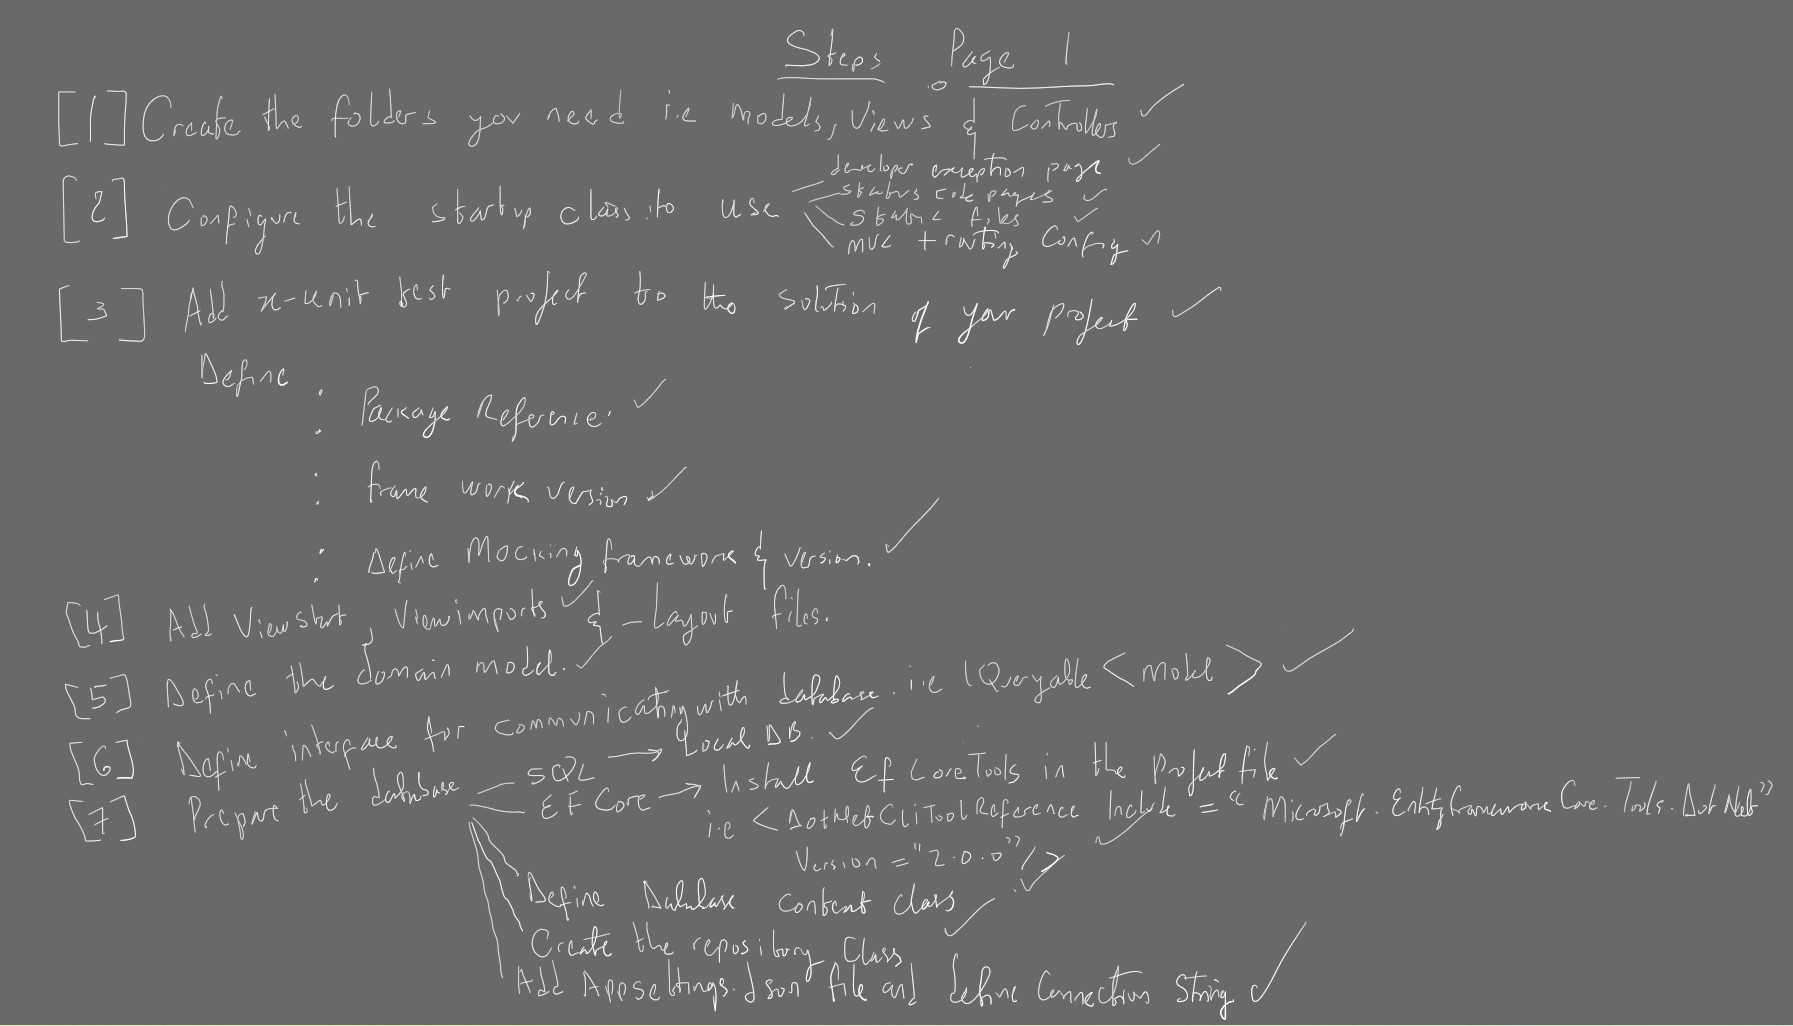 Steps Page 1
[1] Create the folders you need i.e models, Views & Controllers ✓
[2] Configure the startup class to use
developer exception page ✓
status code pages ✓
static files ✓
mvc + routing Config ✓
[3] Add x-unit test project to the solution of your project ✓
Define
: Package Reference. ✓
: frame work version ✓
: Define Mocking framework & version. ✓
[4] Add Viewstart, Viewimports ✓ & _Layout files.
[5] Define the domain model. ✓
[6] Define interface for communicating with database. i.e IQueryable <model> ✓
[7] Prepare the database
SQL → Local DB. ✓
EF Core → Install Ef Core Tools in the Project file ✓
i.e <DotNetCliToolReference Include = "Microsoft.EntityframeworkCore.Tools.DotNet"
Version = "2.0.0"/> ✓
Define Database context class ✓
Create the repository Class ✓
Add Appsettings.Json file and define Connection String ✓